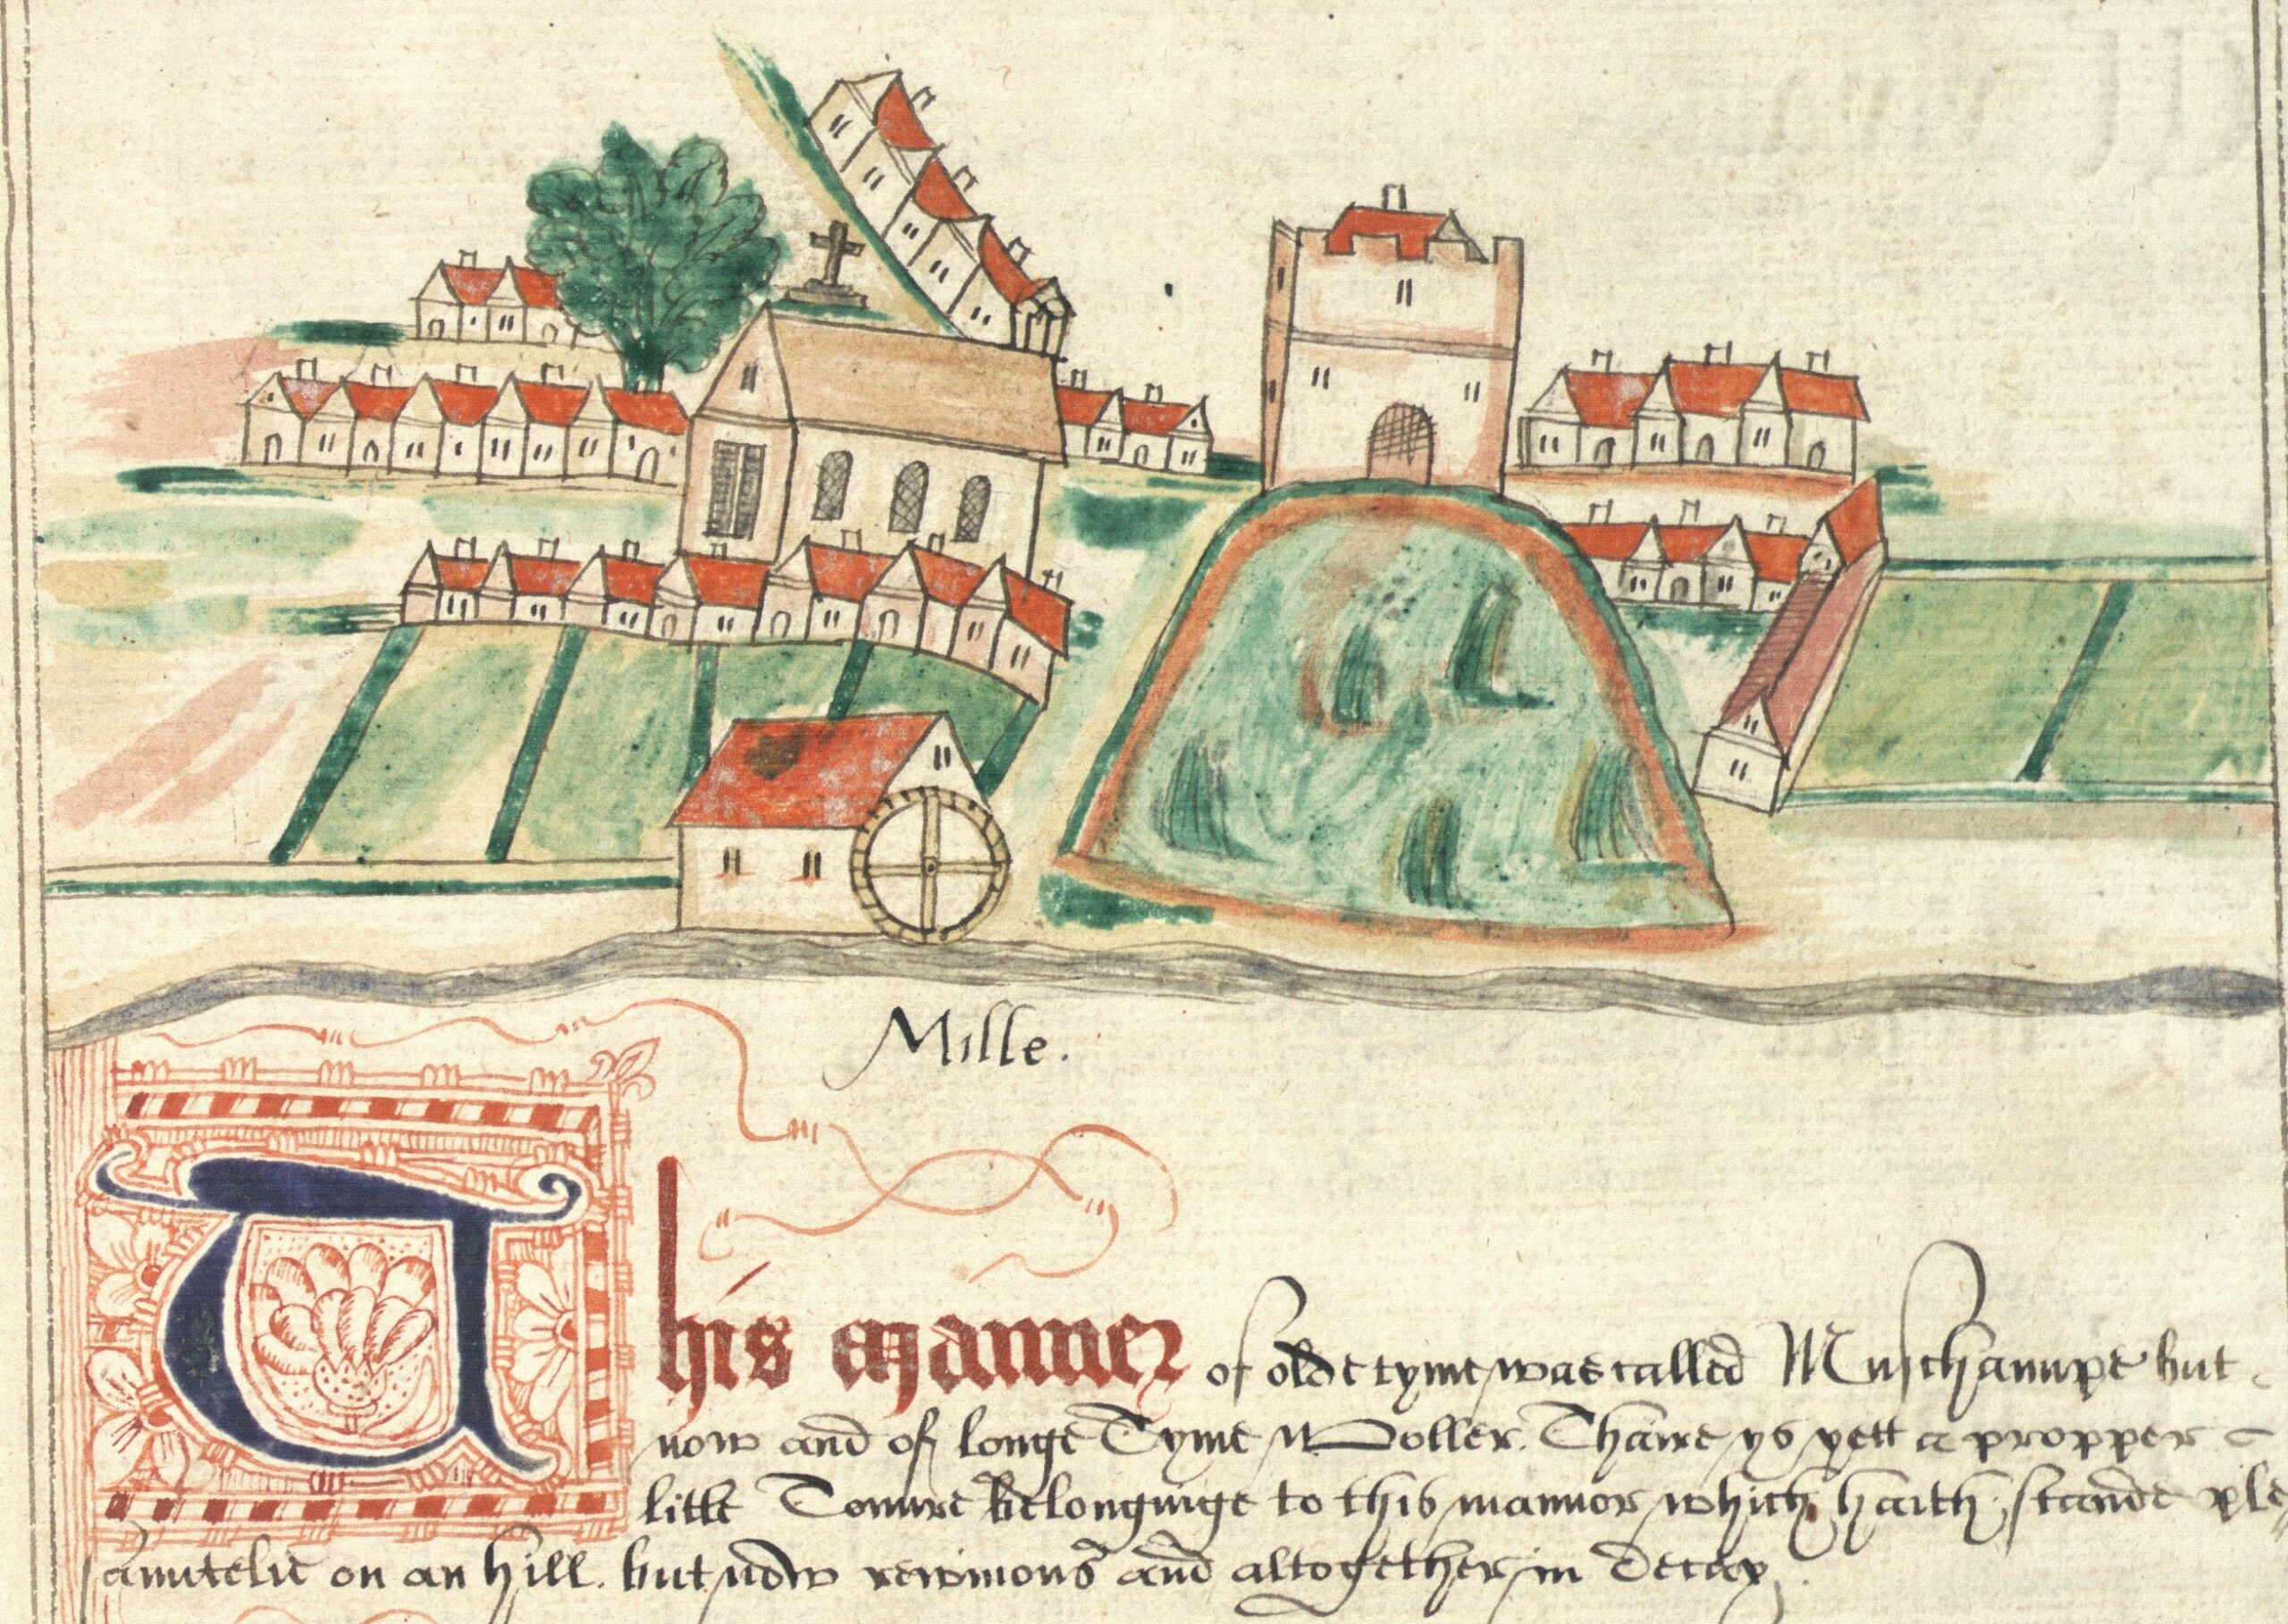 Mille.
This Manner of olde tyme was called Muschampe but
now and of longe Tyme Woller. Thaire ys yett a propper
litle Towre belonginge to this mannor which haith stande ple
santelie on an hill. but now rewinous and altogether in decay